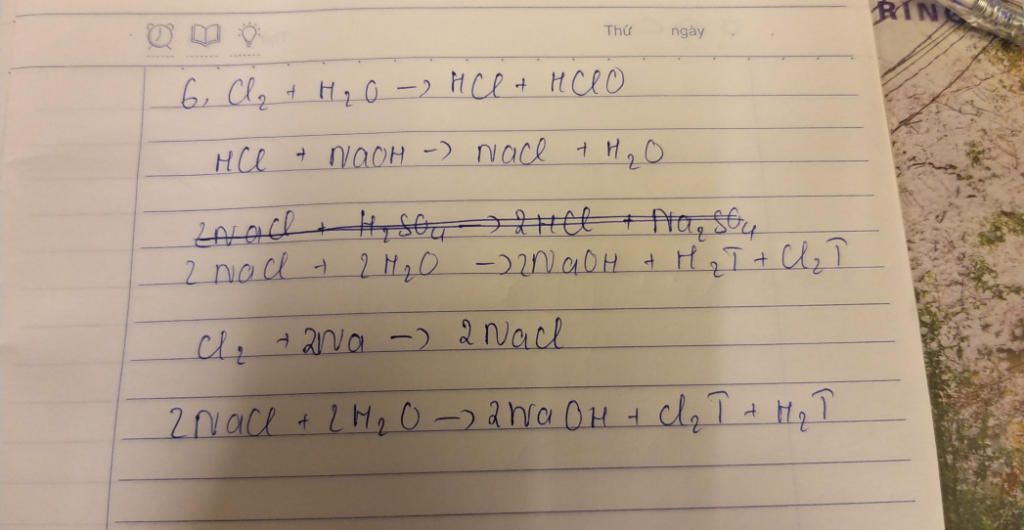 RING
Thứ ngày
6, Cl₂ + H₂O → HCl + HClO
HCl + NaOH → NaCl + H₂O
2NaCl + H₂SO₄ → 2HCl + Na₂SO₄
2NaCl + 2H₂O → 2NaOH + H₂↑ + Cl₂↑
Cl₂ + 2Na → 2NaCl
2NaCl + 2H₂O → 2NaOH + Cl₂↑ + H₂↑